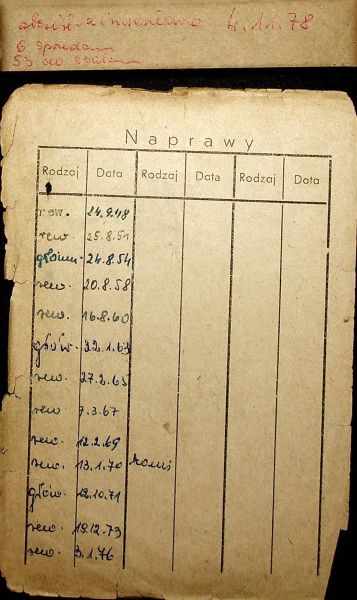 4.11.78
6
53 do
Naprawy
Rodzaj Data Rodzaj Data Rodzaj Data
rew. 24.9.48
rew. 25.8.51
główn. 24.8.54
rew. 20.8.58
rew. 16.8.60
głów. 22.1.63
rew. 27.2.65
rew 7.3.67
rew. 12.2.69
rew. 13.1.70
głów. 12.10.71
rew. 19.12.73
rew. 3.1.76